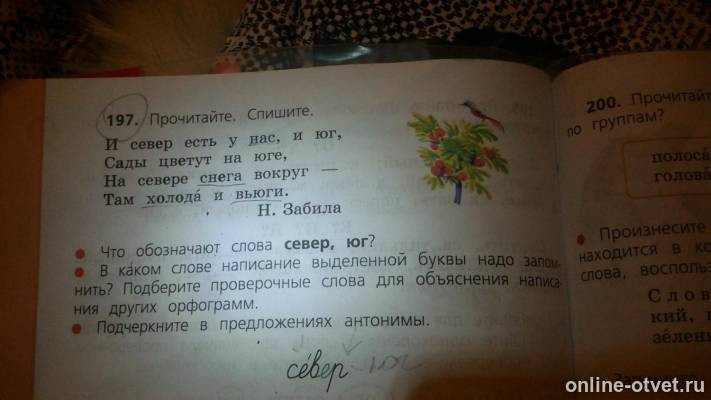 197. Прочитайте. Спишите.
И север есть у нас, и юг,
Сады цветут на юге,
На севере снега вокруг —
Там холода́ и вьюги.
Н. Забила
• Что обозначают слова север, юг?
• В каком слове написание выделенной буквы надо запом-
нить? Подберите проверочные слова для объяснения написа-
ния других орфограмм.
• Подчеркните в предложениях антонимы.
се́вер юг
200. Прочитайт
по группам?
полоса́
голова́
• Произнесите
находится в ко
слова, воспольз
Слов
кий, п
зелены
online-otvet.ru